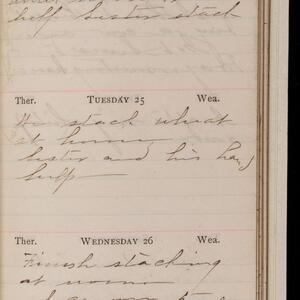 help Lister stack
Ther. TUESDAY 25 Wea.
We stack wheat
at home
Lister and his hand
help
Ther. WEDNESDAY 26 Wea.
Finish stacking
at noon